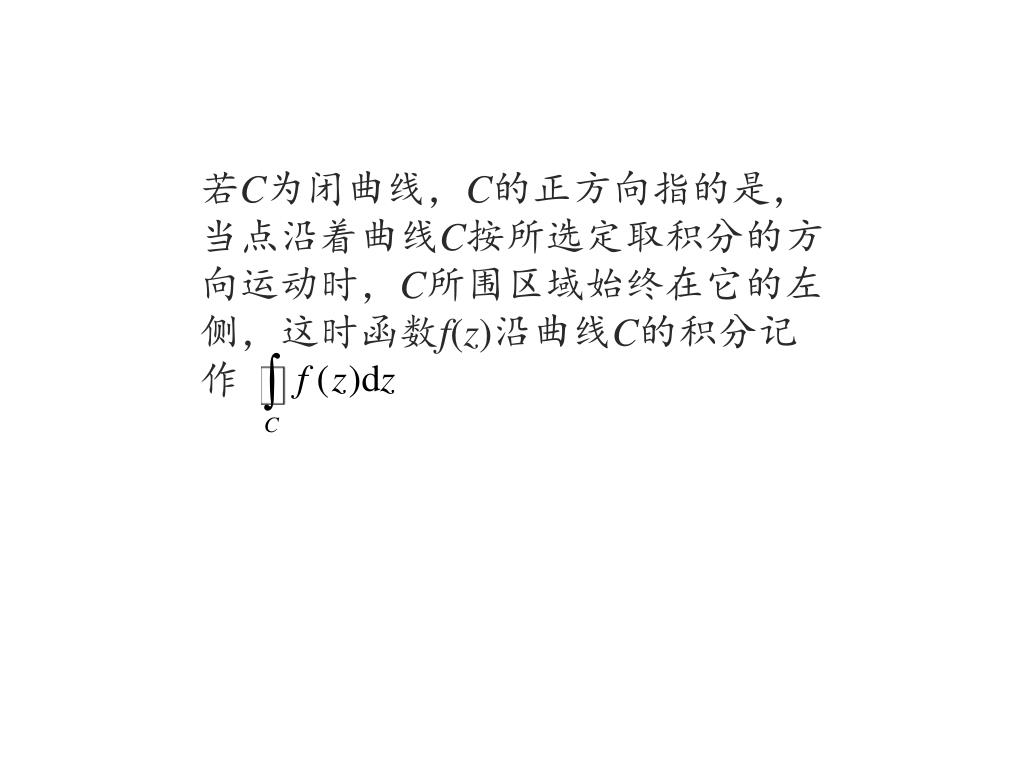 若C为闭曲线，C的正方向指的是，
当点沿着曲线C按所选定取积分的方
向运动时，C所围区域始终在它的左
侧，这时函数f(z)沿曲线C的积分记
作 ∮ f (z)dz
C